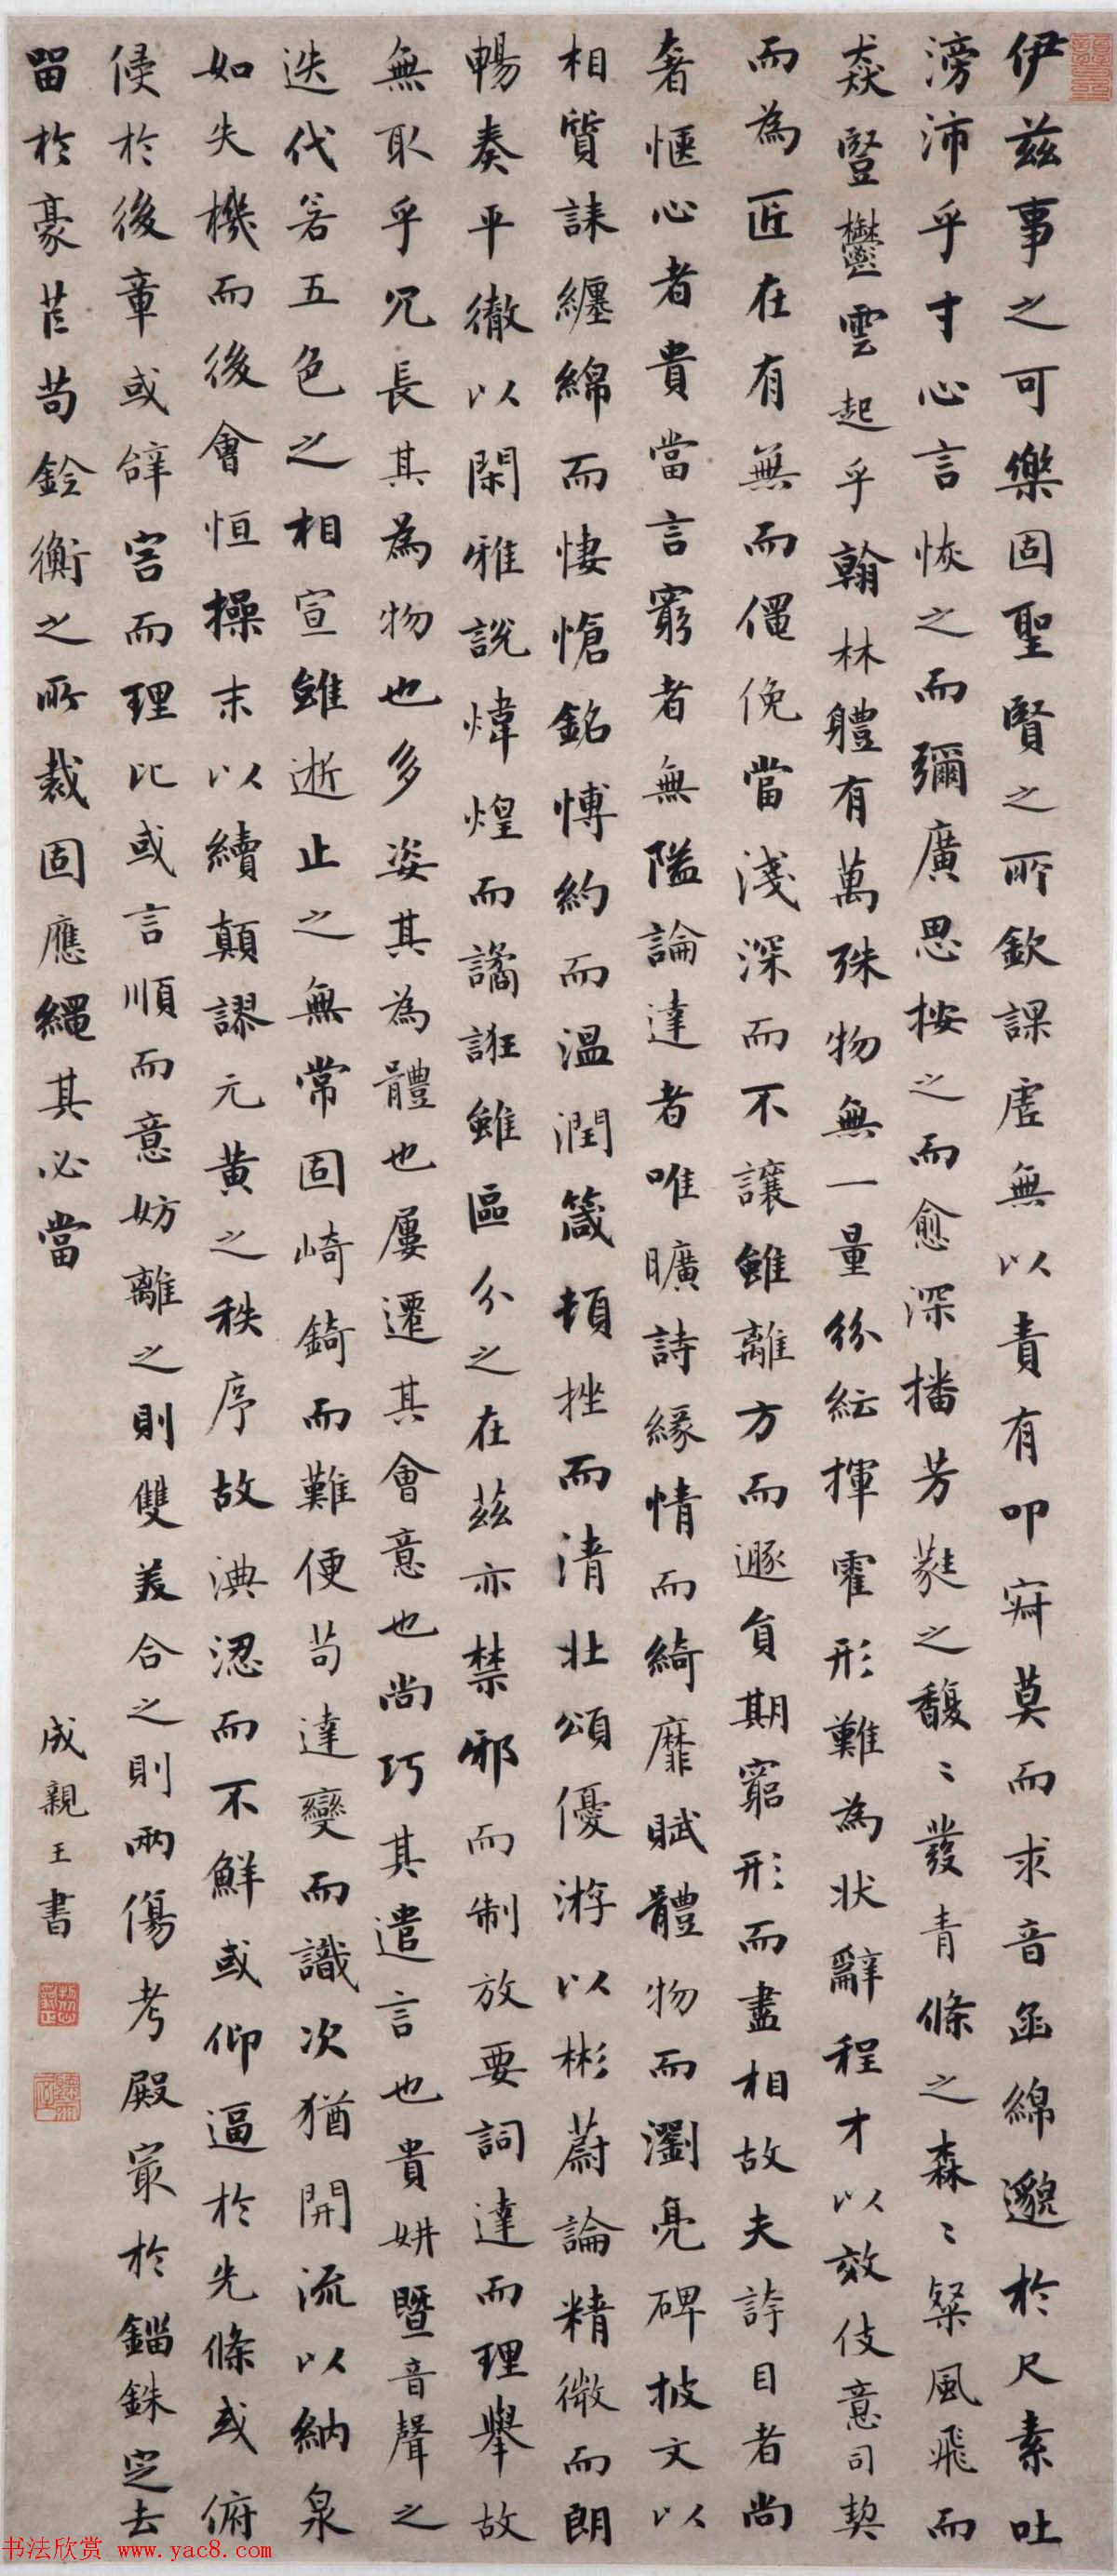 伊兹事之可樂固聖賢之所欽課虛無以責有叩寂莫而求音函綿邈於尺素吐
滂沛乎寸心言恢之而彌廣思按之而愈深播芳蕤之馥〻發青條之森〻粲風飛而
猋豎鬱雲起乎翰林體有萬殊物無一量紛紜揮霍形難為狀辭程才以效伎意司契
而為匠在有無而僶俛當淺深而不讓雖離方而遯負期窮形而盡相故夫誇目者尚
奢愜心者貴當言窮者無隘論達者唯曠詩緣情而綺靡賦體物而瀏亮碑披文以
相質誄纏綿而悽愴銘博約而溫潤箴頓挫而清壯頌優游以彬蔚論精微而朗
暢奏平徹以閑雅說煒煌而譎誑雖區分之在兹亦禁邪而制放要詞達而理舉故
無取乎冗長其為物也多姿其為體也屢遷其會意也尚巧其遣言也貴妍暨音聲之
迭代若五色之相宣雖逝止之無常固崎錡而難便苟達變而識次猶開流以納泉
如失機而後會恒操末以續顛謬元黃之秩序故淟涊而不鮮或仰逼於先條或俯
侵於後章或辭害而理比或言順而意妨離之則雙美合之則兩傷考殿最於錙銖定去
留於豪芒苟銓衡之所裁固應繩其必當
成親王書
书法欣赏 www.yac8.com